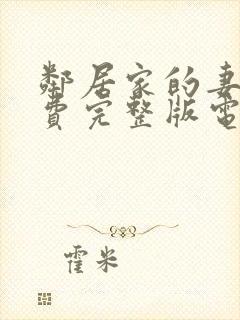 鄰居家的妻
費完整版電
霍米